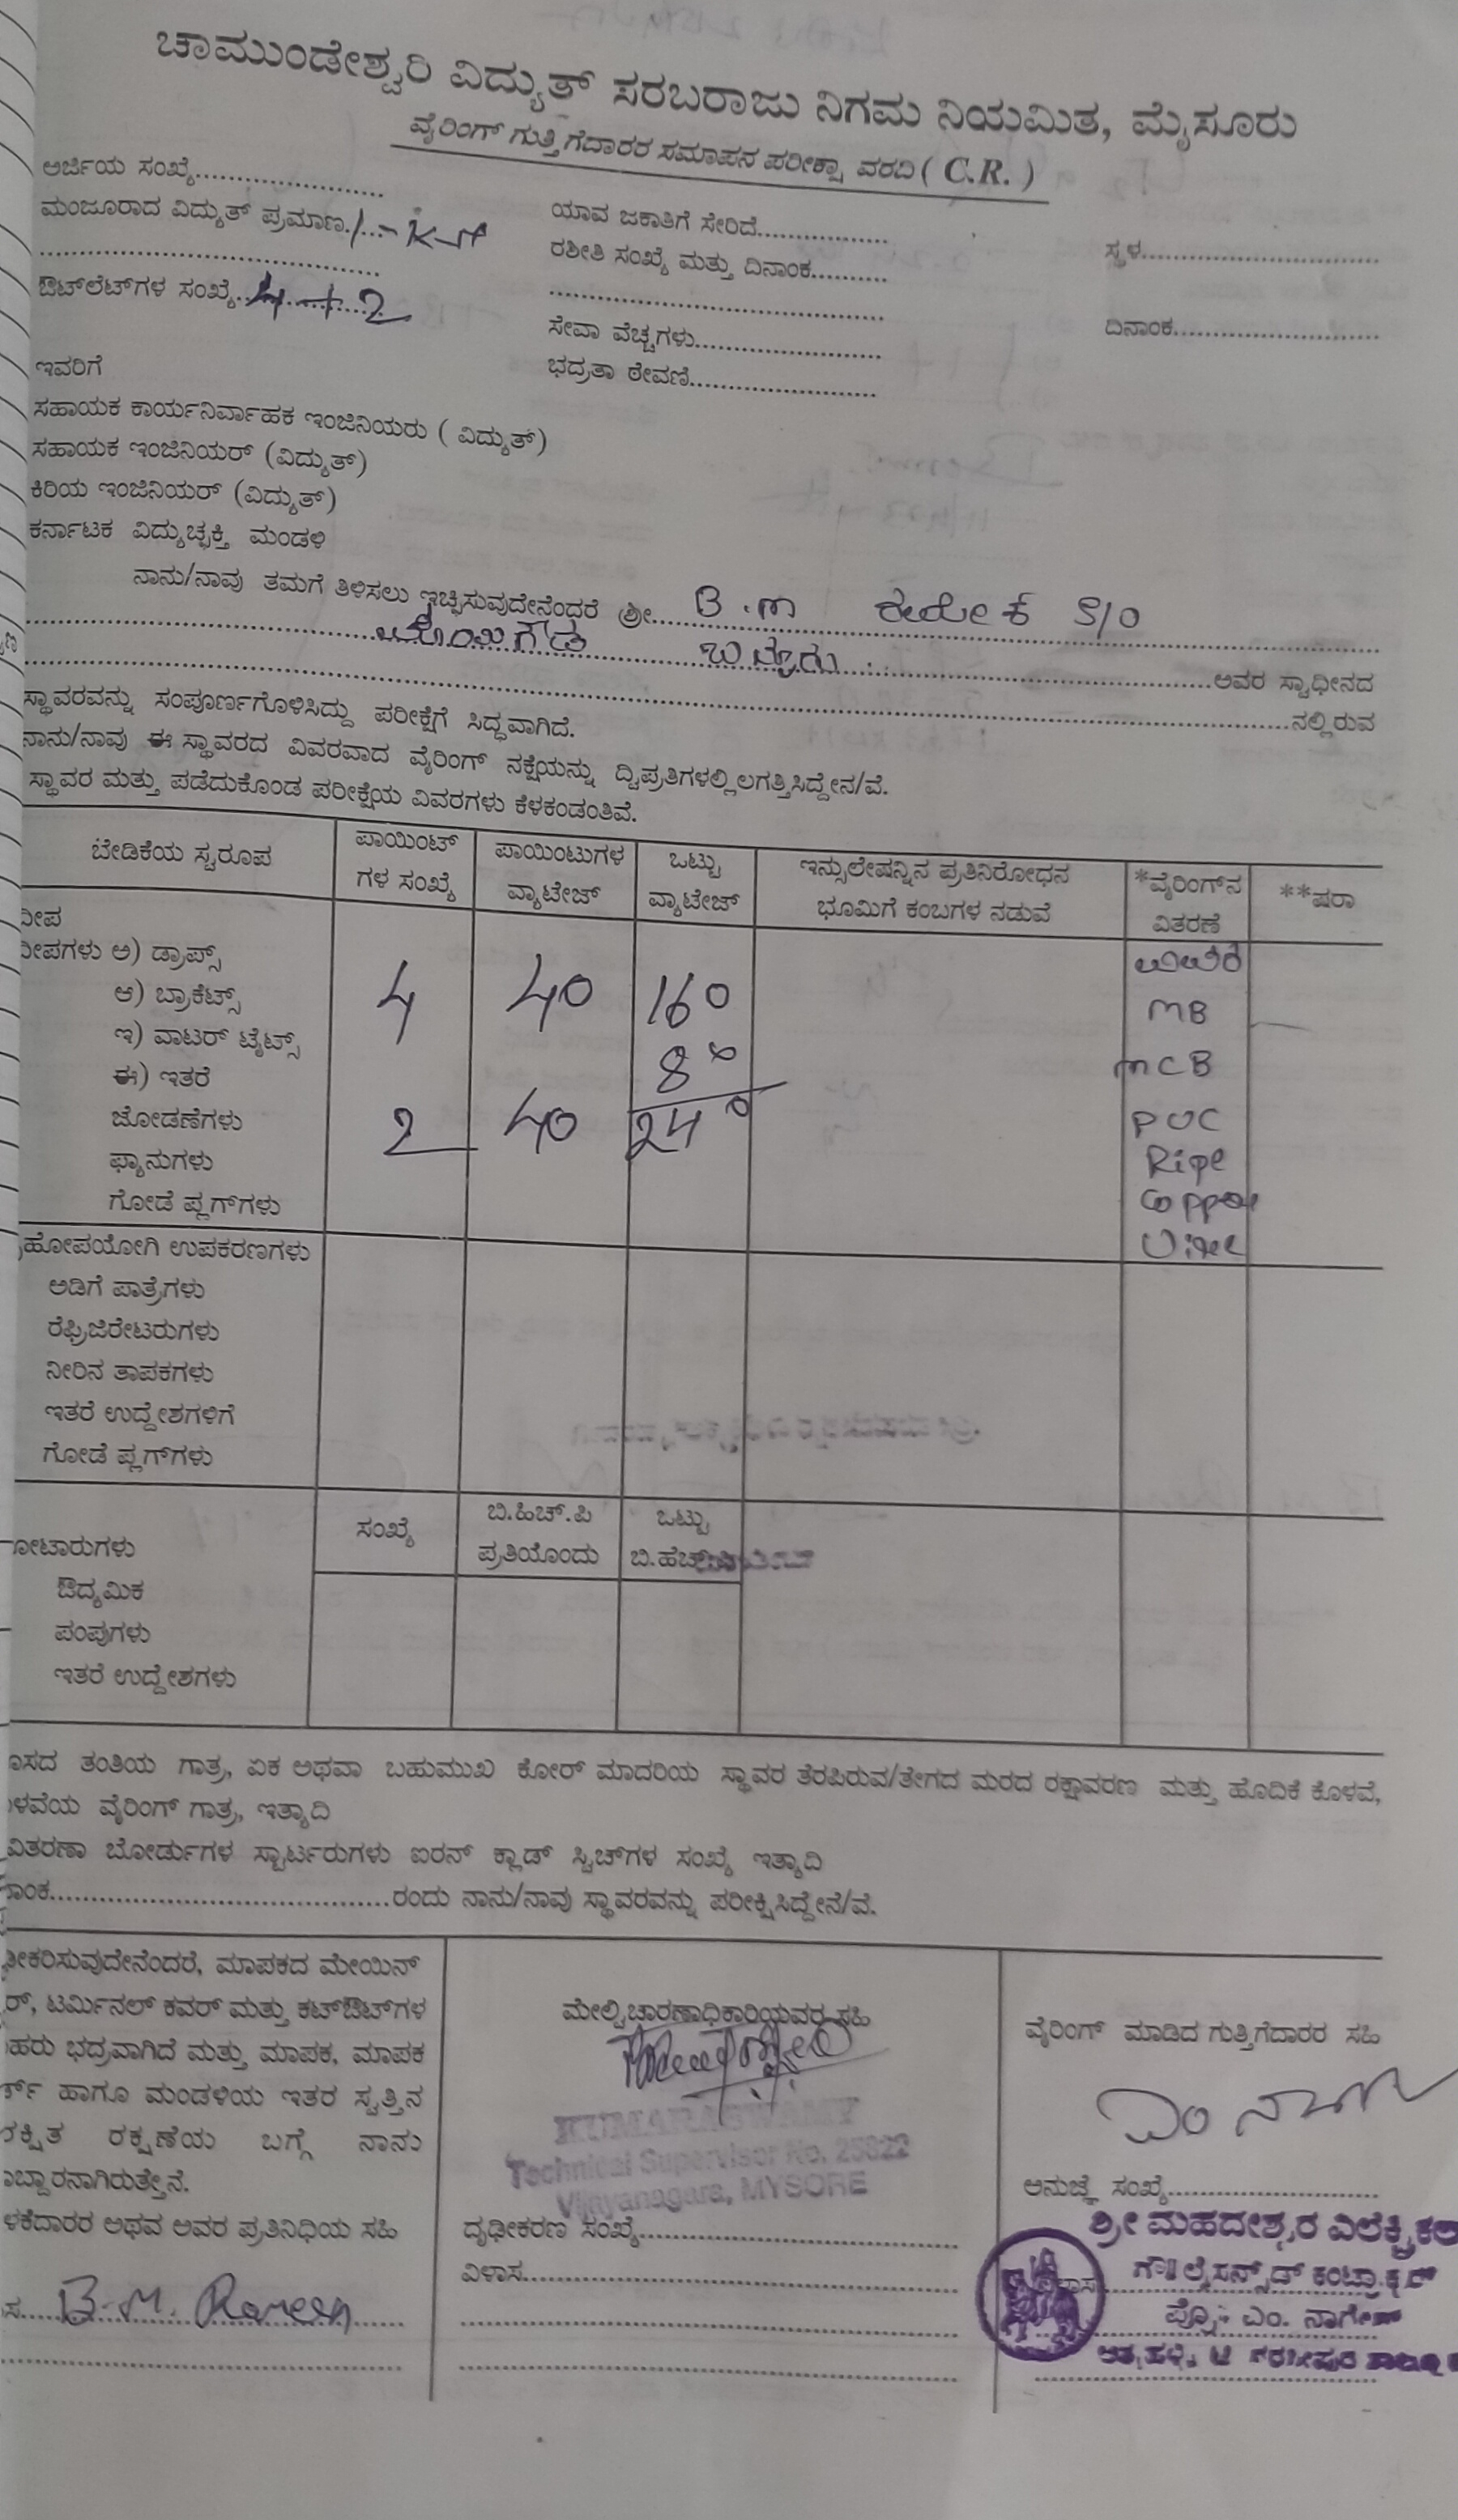 ಚಾಮುಂಡೇಶ್ವರಿ ವಿದ್ಯುತ್ ಸರಬರಾಜು ನಿಗಮ ನಿಯಮಿತ, ಮೈಸೂರು
ವೈರಿಂಗ್ ಗುತ್ತಿಗೆದಾರರ ಸಮಾಪನ ಪರೀಕ್ಷಾ ವರದಿ ( C.R. )
ಅರ್ಜಿಯ ಸಂಖ್ಯೆ.....................
ಮಂಜೂರಾದ ವಿದ್ಯುತ್ ಪ್ರಮಾಣ
ಔಟ್‌ಲೆಟ್‌ಗಳ ಸಂಖ್ಯೆ 4 + 2
ಯಾವ ಜಕಾತಿಗೆ ಸೇರಿದೆ................
ರಶೀತಿ ಸಂಖ್ಯೆ ಮತ್ತು ದಿನಾಂಕ..........
ಸೇವಾ ವೆಚ್ಚಗಳು........................
ಭದ್ರತಾ ಠೇವಣಿ........................
ಸ್ಥಳ..............................
ದಿನಾಂಕ..........................
ಇವರಿಗೆ
ಸಹಾಯಕ ಕಾರ್ಯನಿರ್ವಾಹಕ ಇಂಜಿನಿಯರು ( ವಿದ್ಯುತ್)
ಸಹಾಯಕ ಇಂಜಿನಿಯರ್ (ವಿದ್ಯುತ್)
ಕಿರಿಯ ಇಂಜಿನಿಯರ್ (ವಿದ್ಯುತ್)
ಕರ್ನಾಟಕ ವಿದ್ಯುಚ್ಛಕ್ತಿ ಮಂಡಳಿ
ನಾನು/ನಾವು ತಮಗೆ ತಿಳಿಸಲು ಇಚ್ಛಿಸುವುದೇನೆಂದರೆ ಶ್ರೀ... B.M S/O
ಅವರ ಸ್ವಾಧೀನದ
ನಲ್ಲಿರುವ
ಸ್ಥಾವರವನ್ನು ಸಂಪೂರ್ಣಗೊಳಿಸಿದ್ದು ಪರೀಕ್ಷೆಗೆ ಸಿದ್ಧವಾಗಿದೆ.
ನಾನು/ನಾವು ಈ ಸ್ಥಾವರದ ವಿವರವಾದ ವೈರಿಂಗ್ ನಕ್ಷೆಯನ್ನು ದ್ವಿಪ್ರತಿಗಳಲ್ಲಿ ಲಗತ್ತಿಸಿದ್ದೇನ/ವೆ.
ಸ್ಥಾವರ ಮತ್ತು ಪಡೆದುಕೊಂಡ ಪರೀಕ್ಷೆಯ ವಿವರಗಳು ಕೆಳಕಂಡಂತಿವೆ.
ಬೇಡಿಕೆಯ ಸ್ವರೂಪ
ಪಾಯಿಂಟ್
ಗಳ ಸಂಖ್ಯೆ
ಪಾಯಿಂಟುಗಳ
ವ್ಯಾಟೇಜ್
ಒಟ್ಟು
ವ್ಯಾಟೇಜ್
ಇನ್ಸುಲೇಷನ್ನಿನ ಪ್ರತಿನಿರೋಧನ
ಭೂಮಿಗೆ ಕಂಬಗಳ ನಡುವೆ
*ವೈರಿಂಗ್‌ನ
ವಿತರಣೆ
**ಷರಾ
ಅ) ಡ್ರಾಪ್ಸ್
ಆ) ಬ್ರಾಕೆಟ್ಸ್ 4 40 160 MB
ಇ) ವಾಟರ್ ಟೈಟ್ಸ್
ಈ) ಇತರೆ 80 MCB
ಜೋಡಣೆಗಳು 2 40 240 PVC
ಫ್ಯಾನುಗಳು Pipe
ಗೋಡೆ ಪ್ಲಗ್‌ಗಳು Copper
ಉಪಕರಣಗಳು
ಅಡಿಗೆ ಪಾತ್ರೆಗಳು
ರೆಫ್ರಿಜಿರೇಟರುಗಳು
ನೀರಿನ ತಾಪಕಗಳು
ಇತರೆ ಉದ್ದೇಶಗಳಿಗೆ
ಗೋಡೆ ಪ್ಲಗ್‌ಗಳು
ಸಂಖ್ಯೆ
ಬಿ.ಹಿಚ್.ಪಿ
ಪ್ರತಿಯೊಂದು
ಒಟ್ಟು
ಔದ್ಯಮಿಕ
ಪಂಪುಗಳು
ಇತರೆ ಉದ್ದೇಶಗಳು
ತಂತಿಯ ಗಾತ್ರ, ಏಕ ಅಥವಾ ಬಹುಮುಖ ಕೋರ್ ಮಾದರಿಯ ಸ್ಥಾವರ ತೆರಪಿರುವ/ತೇಗದ ಮರದ ರಕ್ಷಾವರಣ ಮತ್ತು ಹೊದಿಕೆ ಕೊಳವೆ,
ವೈರಿಂಗ್ ಗಾತ್ರ, ಇತ್ಯಾದಿ
ವಿತರಣಾ ಬೋರ್ಡುಗಳ ಸ್ಟಾರ್ಟರುಗಳು ಐರನ್ ಕ್ಲಾಡ್ ಸ್ವಿಚ್‌ಗಳ ಸಂಖ್ಯೆ ಇತ್ಯಾದಿ
ರಂದು ನಾನು/ನಾವು ಸ್ಥಾವರವನ್ನು ಪರೀಕ್ಷಿಸಿದ್ದೇನೆ/ವೆ.
ಮಾಪಕದ ಮೇಯಿನ್
ಟರ್ಮಿನಲ್ ಕವರ್ ಮತ್ತು ಕಟ್‌ಔಟ್‌ಗಳ
ಭದ್ರವಾಗಿದೆ ಮತ್ತು ಮಾಪಕ, ಮಾಪಕ
ಹಾಗೂ ಮಂಡಳಿಯ ಇತರ ಸ್ವತ್ತಿನ
ರಕ್ಷಣೆಯ ಬಗ್ಗೆ ನಾನು
ಅಥವ ಅವರ ಪ್ರತಿನಿಧಿಯ ಸಹಿ
B.M. Ramesh
ಮೇಲ್ವಿಚಾರಣಾಧಿಕಾರಿಯವರ ಸಹಿ
KUMARASWAMY
Technical Supervisor No. 25822
Vijayanagara, MYSORE
ದೃಢೀಕರಣ ಸಂಖ್ಯೆ
ವಿಳಾಸ
ವೈರಿಂಗ್ ಮಾಡಿದ ಗುತ್ತಿಗೆದಾರರ ಸಹಿ
ಅನುಜ್ಞೆ ಸಂಖ್ಯೆ
ಶ್ರೀ ಮಹದೇಶ್ವರ ಎಲೆಕ್ಟ್ರಿಕಲ
ಗೌ|| ಲೈಸನ್ಸ್‌ಡ್ ಕಂಟ್ರಾಕ್ಟರ್
ಪ್ರೊ:- ಎಂ. ನಾಗೇಶ್